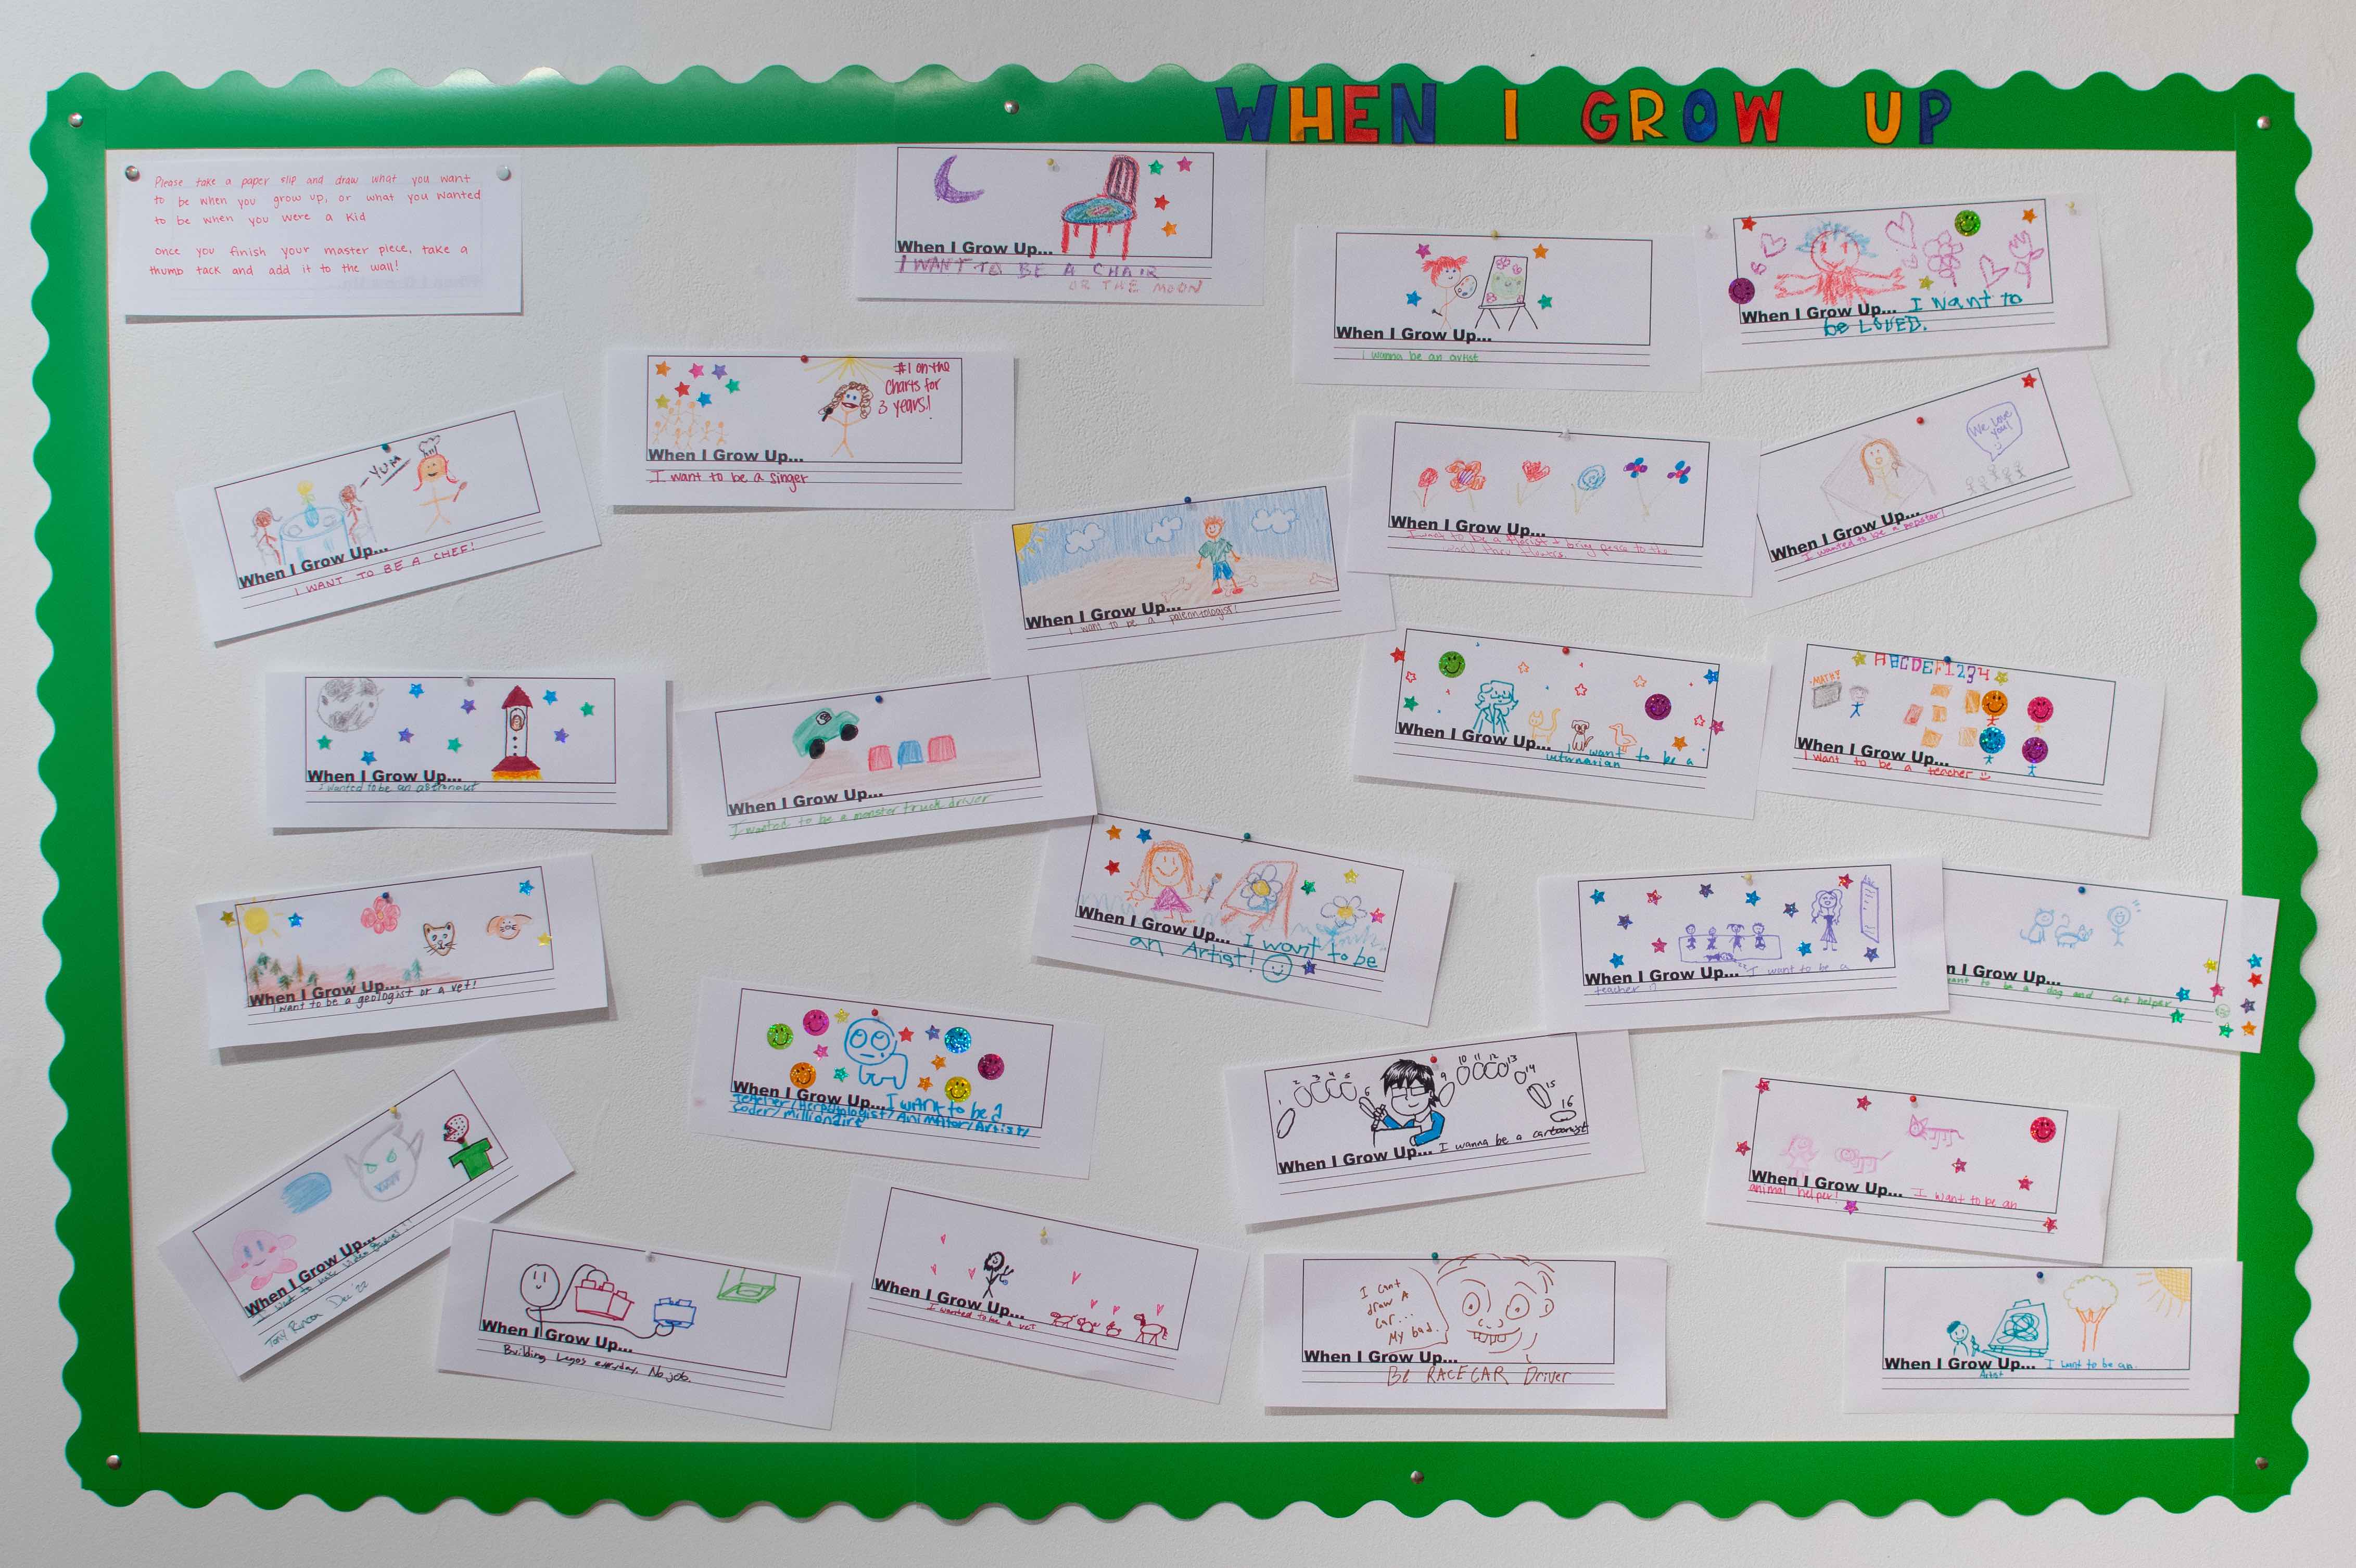 WHEN I GROW UP
Please take a paper slip and draw what you want
to be when you grow up, or what you wanted
to be when you were a kid
Once you finish your master piece, take a
thumb tack and add it to the wall!
When I Grow Up...
I WANT TO BE A CHAIR
OR THE MOON
When I Grow Up...
I wanna be an artist
When I Grow Up... I want to
be LOVED.
#1 on the
Charts for
3 years!
When I Grow Up...
I want to be a singer
YUM
When I Grow Up...
I WANT TO BE A CHEF!
When I Grow Up...
I want to be a florist + bring peace to the
world thru flowers.
We love
you!
When I Grow Up...
I wanted to be a popstar!
When I Grow Up...
I want to be a paleontologist!
When I Grow Up...
I wanted to be an astronaut
When I Grow Up...
I wanted to be a monster truck driver
When I Grow Up... I want to be a
veturnarian
ABCDEF1234
MATH?
When I Grow Up...
I want to be a teacher
When I Grow Up...
I want to be a geologist or a vet!
When I Grow Up... I want to be
an Artist!
When I Grow Up... I want to be a
teacher
n I Grow Up...
ant to be a dog and cat helper
When I Grow Up... I want to be a
Teacher/Herpetologist/Animator/Artist/
Coder/millionaire
1 2 3 4 5 6 9 10 11 12 13 14 15 16
When I Grow Up... I wanna be a cartoonist
When I Grow Up... I want to be an
animal helper!
When I Grow Up...
I want to make Video Games!!
Tony Dec 22
When I Grow Up...
Building Legos everyday. No job.
When I Grow Up...
I wanted to be a vet
I cant
draw A
car...
My bad.
When I Grow Up...
Be RACECAR Driver
When I Grow Up... I want to be an
Artist